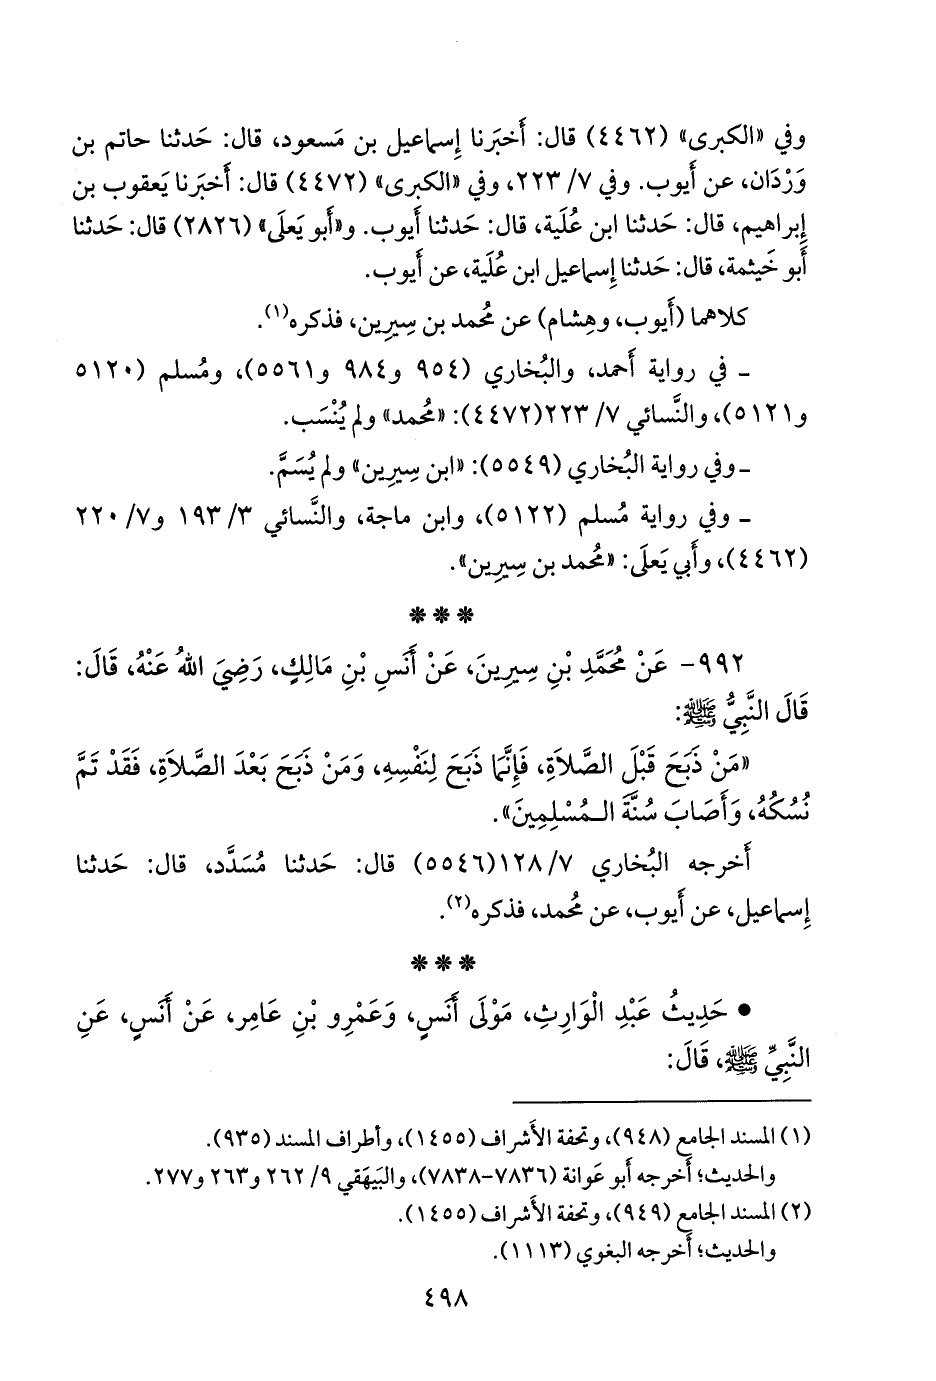 وفي «الكبرى» (٤٤٦٢) قال: أَخبَرنا إِسماعيل بن مَسعود، قال: حَدثنا حاتم بن
وَرْدَان، عن أَيوب. وفي ٧/ ٢٢٣، وفي «الكبرى» (٤٤٧٢) قال: أَخبَرنا يَعقوب بن
إِبراهيم، قال: حَدثنا ابن عُلَية، قال: حَدثنا أَيوب. و«أَبو يَعلَى» (٢٨٢٦) قال: حَدثنا
أَبو خَيثمة، قال: حَدثنا إِسماعيل ابن عُلَية، عن أَيوب.
كلاهما (أَيوب، وهِشام) عن مُحمد بن سِيرِين، فذكره(١).
ـ في رواية أَحمد، والبُخاري (٩٥٤ و٩٨٤ و٥٥٦١)، ومُسلم (٥١٢٠
و٥١٢١)، والنَّسائي ٧/ ٢٢٣(٤٤٧٢): «مُحمد» ولم يُنْسَب.
ـ وفي رواية البُخاري (٥٥٤٩): «ابن سِيرين» ولم يُسَمَّ.
ـ وفي رواية مُسلم (٥١٢٢)، وابن ماجة، والنَّسائي ٣/ ١٩٣ و٧/ ٢٢٠
(٤٤٦٢)، وأَبي يَعلَى: «مُحمد بن سِيرِين».
* * *
٩٩٢- عَنْ مُحَمَّدِ بْنِ سِيرِينَ، عَنْ أَنَسِ بْنِ مَالِكٍ، رَضِيَ اللهُ عَنْهُ، قَالَ:
قَالَ النَّبِيُّ ﷺ:
«مَنْ ذَبَحَ قَبْلَ الصَّلاَةِ، فَإِنَّمَا ذَبَحَ لِنَفْسِهِ، وَمَنْ ذَبَحَ بَعْدَ الصَّلاَةِ، فَقَدْ تَمَّ
نُسُكُهُ، وَأَصَابَ سُنَّةَ الـمُسْلِمِينَ».
أَخرجه البُخاري ٧/ ١٢٨(٥٥٤٦) قال: حَدثنا مُسَدَّد، قال: حَدثنا
إِسماعيل، عن أَيوب، عن مُحمد، فذكره(٢).
* * *
• حَدِيثُ عَبْدِ الْوَارِثِ، مَوْلَى أَنَسٍ، وَعَمْرِو بْنِ عَامِر، عَنْ أَنَسٍ، عَنِ
النَّبِيِّ ﷺ، قَالَ:
(١) المسند الجامع (٩٤٨)، وتحفة الأَشراف (١٤٥٥)، وأطراف المسند (٩٣٥).
والحديث؛ أَخرجه أَبو عَوانة (٧٨٣٦-٧٨٣٨)، والبَيهَقي ٩/ ٢٦٢ و٢٦٣ و٢٧٧.
(٢) المسند الجامع (٩٤٩)، وتحفة الأَشراف (١٤٥٥).
والحديث؛ أَخرجه البغوي (١١١٣).
٤٩٨